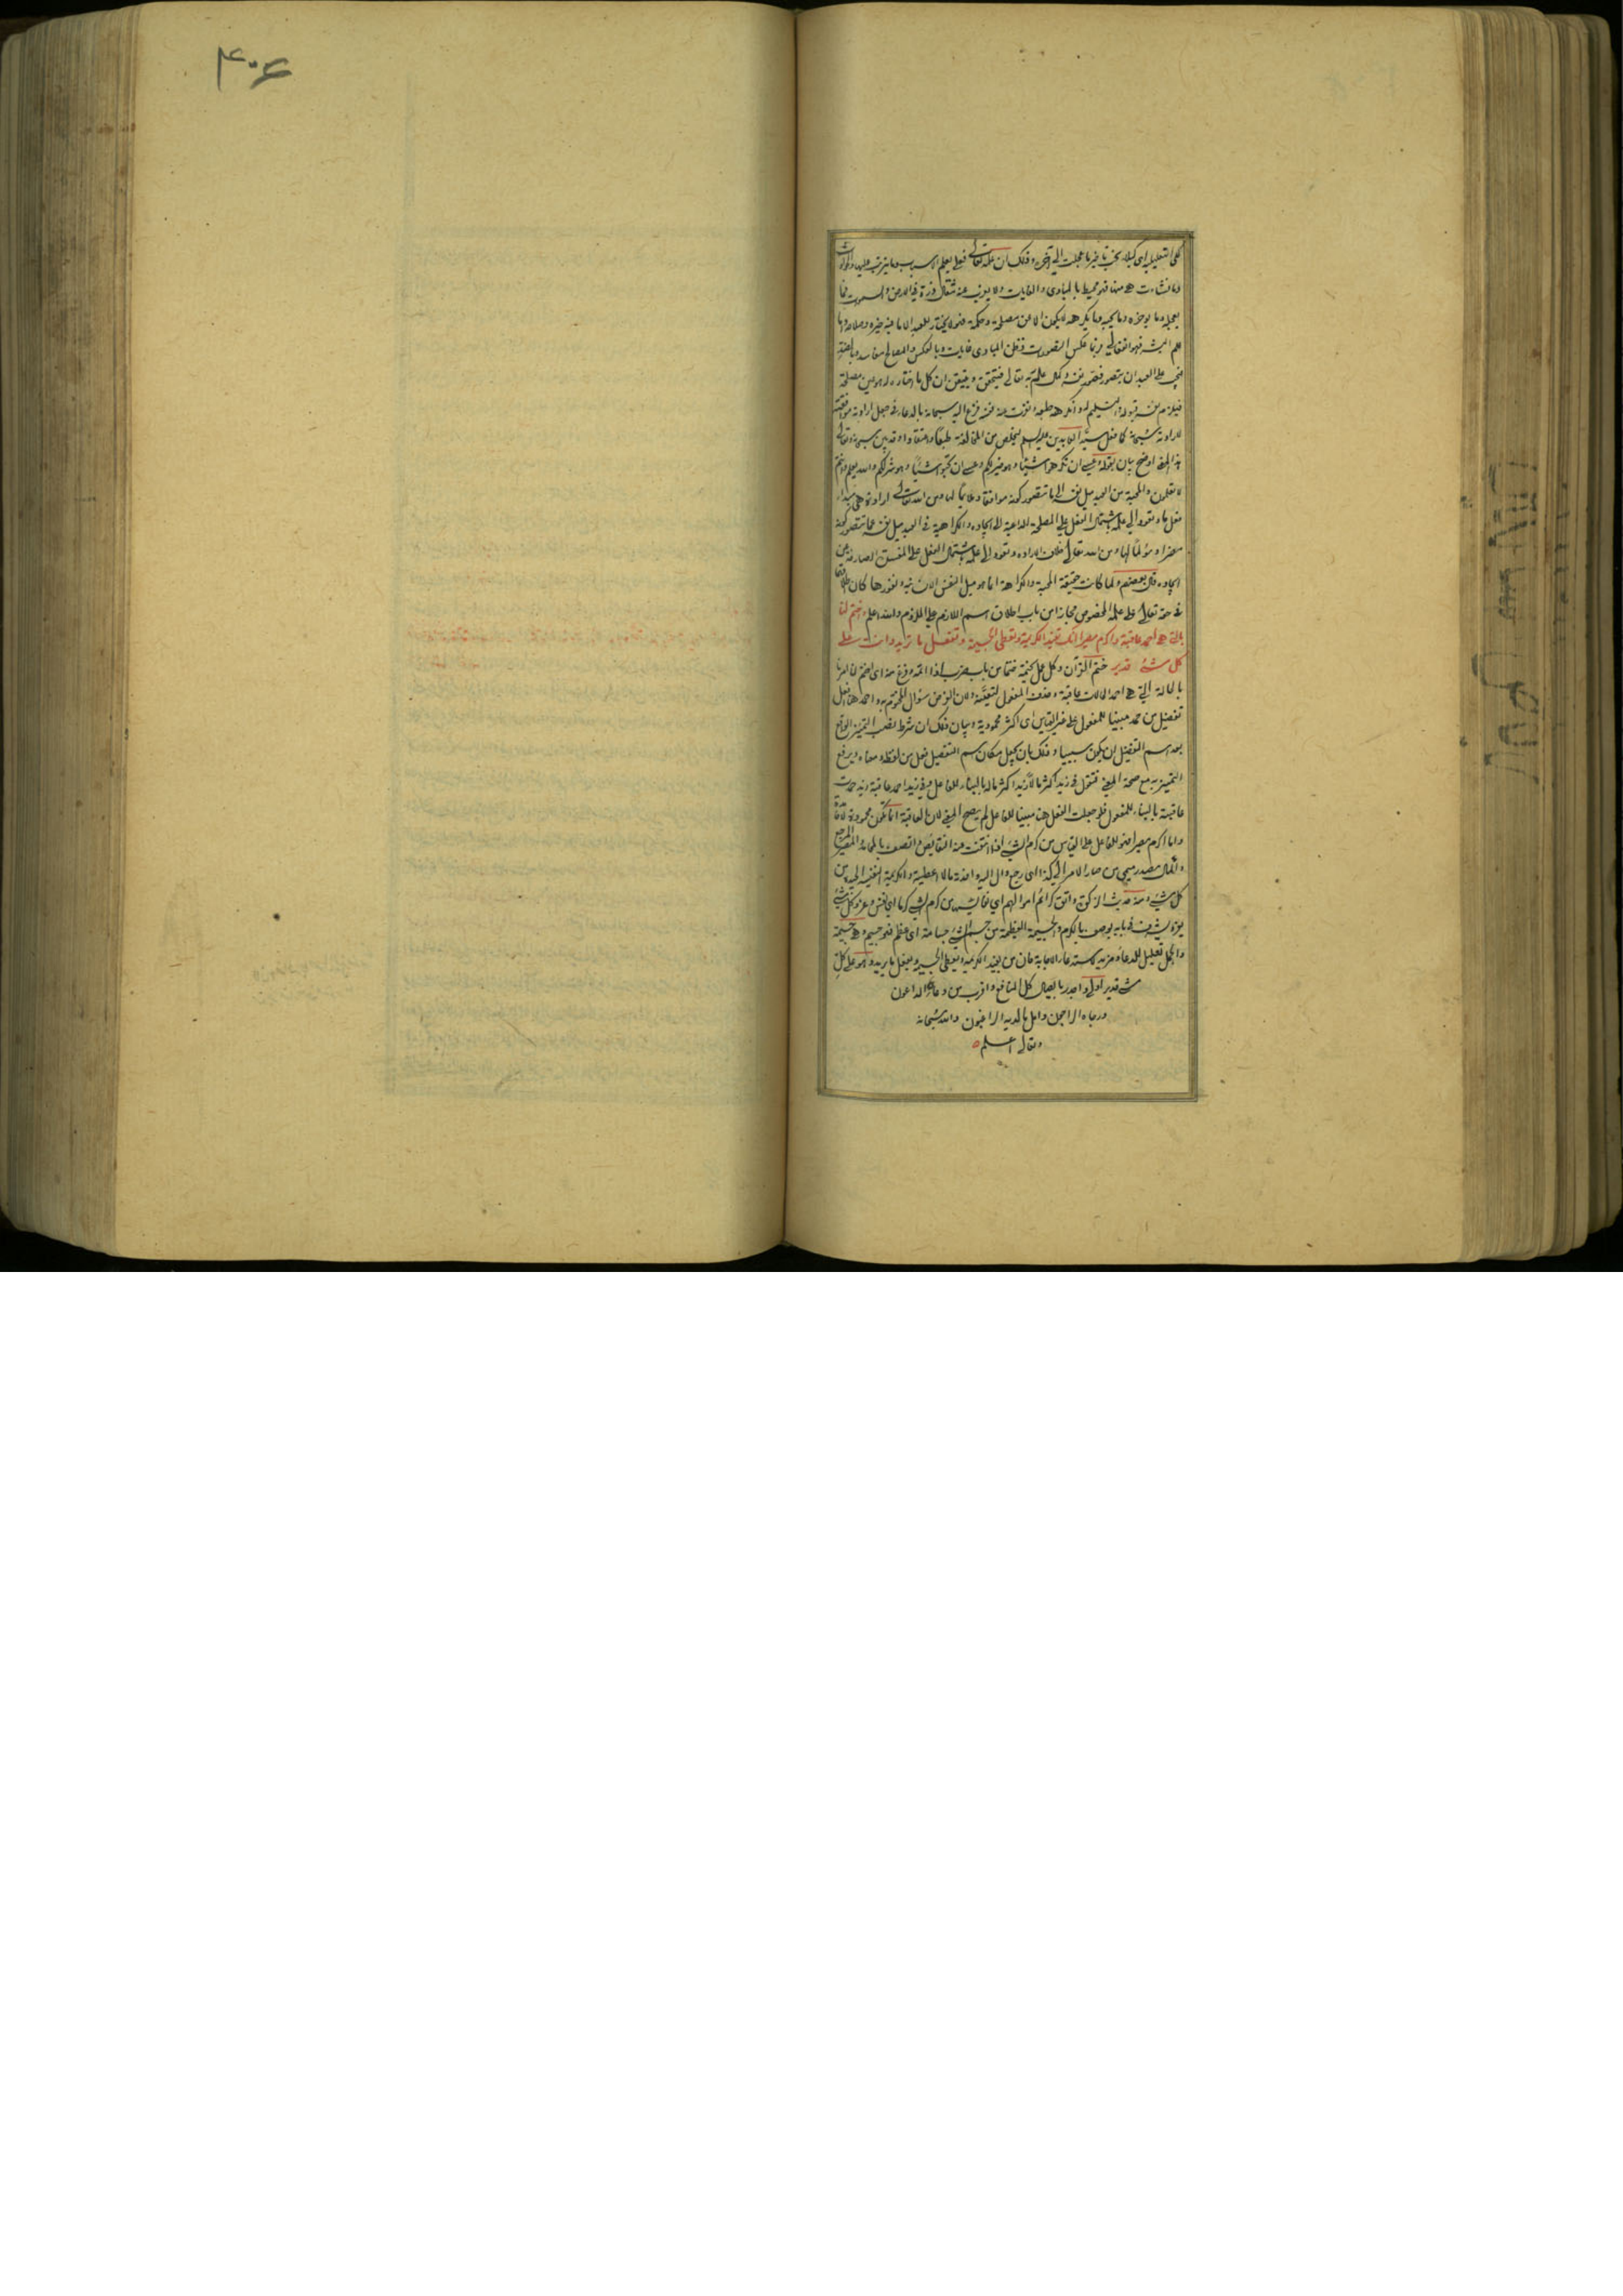 ۴۰۶
كلي التعليلية اي كيلا نحب تاخير ما عجلت الى آخره وذلك ان علمه تعالى فعلي يعلم الاسباب وما يترتب عليها والحوادث
وما نشأت هي منها فهو محيط بالمبادي والغايات ولا يعزب عنه مثقال ذرة في الارض والسموت فما
يعجله وما يوخره وما يحبه وما يكرهه لا يكون الا عن مصلحة وحكمة فهو لا يختار للعبد الا ما فيه خيره وصلاحه واما
علم البشر فهو انفعالي وربما عكس التصورات فظن المبادي غايات وبالعكس والمصالح مفاسد وبالعكس
على العبد ان يتصور قصور نفسه وكمال علم ربه تعالى فيتحقق ويتيقن ان كل ما اختاره له هو عين مصلحته
فيلزم نفسه قبوله والتسليم له وان كرهه طبعه ونفرت عنه نفسه فزع اليه سبحانه بالدعاء في جعل ارادته موافقة
لارادته سبحانه كما فعل سيد العابدين عليه السلام ليخلص من المخالفة طبعا واعتقادا وقد بين سبحانه وتعالى
هذا المعنى اوضح بيان بقوله وعسى ان تكرهوا شيئا وهو خير لكم وعسى ان تحبوا شيئا وهو شر لكم والله يعلم وانتم
لا تعلمون والمحبة من العبد ميل نفسه الى ما تتصور كونه موافقا وملائما لها ومن الله تعالى ارادة هي مبداء
فعل ما وتعود الى علمه باشتمال الفعل على المصلحة الداعية الى ايجاده والكراهية في العبد ميل نفسه عما تتصور كونه
مضرا ومؤلما لها ومن الله تعالى خلاف الارادة وتعود الى علمه باشتمال الفعل على المفسدة الصارفة عن
ايجاده قال بعضهم ولما كانت حقيقة المحبة والكراهة انما هو ميل النفس الانسانية ونفورها كان اطلاقهما
في حقه تعالى على علمه المخصوص مجازا من باب اطلاق اسم اللازم على الملزوم والله اعلم واختم لنا
بالتي هي احمد عاقبة واكرم مصيرا انك تفيد الكريمة وتعطي الجسيمة وتفعل ما تريد وانت على
كل شيء قدير ختم القرآن وكل عمل يختمه ختما من باب ضرب اذا اتمه وفرغ منه اي اختم لنا امرنا
بالحالة التي هي احمد الحالات عاقبة وحذف المفعول لتعينه ولان الغرض سؤال المختوم به واحمد هنا افعل
تفضيل من حمد مبنيا للمفعول على غير القياس اى اكثر محمودية وبيان ذلك ان شرط نصب التمييز الواقع
بعد اسم التفضيل ان يكون سببيا وذلك بان يجعل مكان اسم التفضيل فعل من لفظه ومعناه ويرفع
التمييز به مع صحة المعنى فتقول في زيد اكثر مالا زيد اكثر ماله بالبناء للفاعل وفي زيد احمد عاقبة زيد حمدت
عاقبته بالبناء للمفعول فلو جعلت الفعل هنا مبنيا للفاعل لم يصح المعنى لان العاقبة انما تكون محمودة لا حامدة
واما اكرم مصيرا فهو للفاعل على القياس من كرم الشيء اذا انتفت عنه النقائص واتصف بالمحامد والمصير المرجع
والمآل مصدر ميمي من صار الامر الى كذا اى رجع وآل اليه وافدته مالا اعطيته والكريمة النفيسة الجيدة من
كل شيء ومنه حديث الزكوة واتق كرائم اموالهم اي نفائسها من كرم الشيء كرما اي نفس وعز وكل شيء
يعز ويشرف في بابه يوصف بالكرم والجسيمة العظيمة من جسم الشيء جسامة اى عظم فهو جسيم وهي جسيمة
والجمل تعليل للدعاء ومزيد استدعاء للاجابة فان من يفيد الكريمة ويعطي الجسيمة ويفعل ما يريد وهو على كل
شيء قدير اولى واجدر بايصال كل المنافع واقرب من دعاه الداعون
ورجاه الراجون وامل ما لديه الراغبون والله سبحانه
وتعالى اعلم